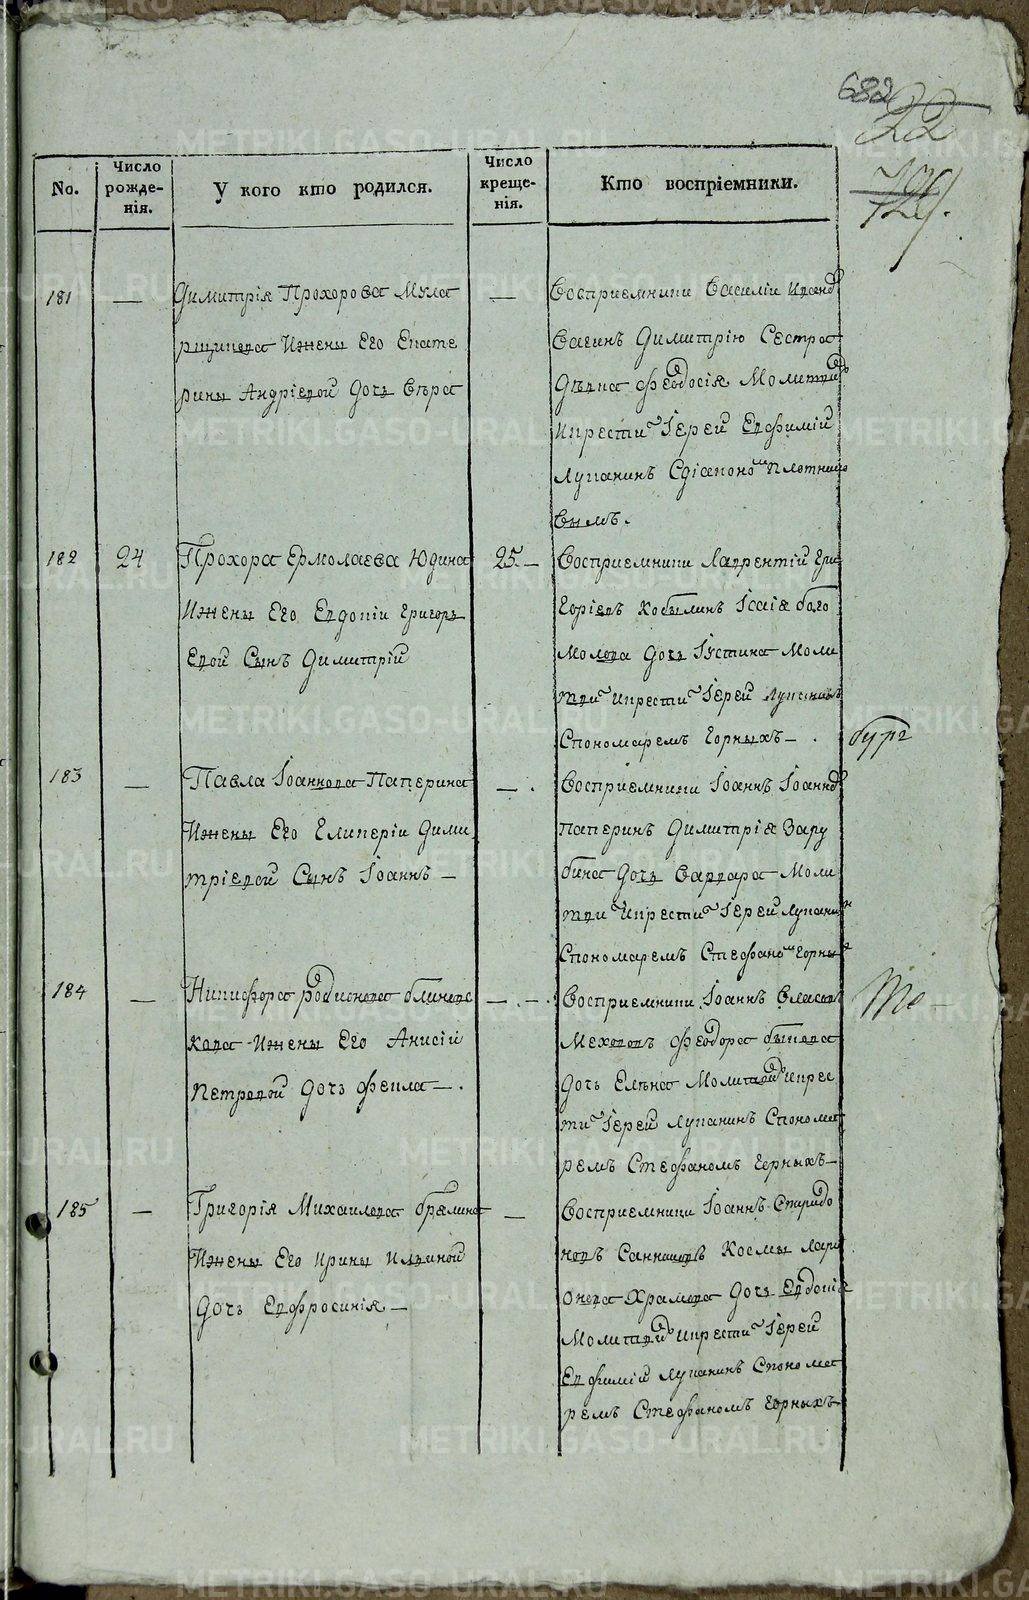 682
22
726.
No.
Число рожде-нія.
У кого кто родился.
Число креще-нія.
Кто воспріемники.
181 — Димитрія Прохорова Мула
рщикова Ижены Его Екате
рины Андріевой Дочь Вѣра
— Восприемники Василіи Иванов
Вагинъ Димитрію Сестра
Дѣвка Феодосія Молитвов
Икрести Іерей Евфимій
Лукaнинъ Сдіаконом Плотнико
вымъ.
182 24 Прохора Ермолаева Юдина
Ижены Его Евдокіи Григорь
Евой Сынъ Димитрій
25. — Восприемники Лаврентій Гри
Горіевъ Кобылинъ Ісаія бого
Молова Дочь Іустина Моли
тви Икрести Іерей Луканинъ
Спономаремъ Горныхъ — .
183 — Павла Іоаннова Паперина
Ижены Его Гликеріи Дими
тріевой Сынъ Іоаннъ —
— . Восприемники Іоаннъ Іоаннов
Паперинъ Димитрія Зару
бина Дочь Варвара Моли
тви Икрести Іерей Луканин
Спономаремъ Стефаном Горных
184 — Никифора Родионова блинов
скова Ижены Его Анисій
Петровой Дочь Фекла — .
— . — . Восприемники Іоаннъ Власовъ
Меховъ Феодора быкова
Дочь Елѣна Молитвой Икрес
ти Іерей Луканинъ Спонома
ремъ Стефаномъ Горныхъ —
185 — Григорія Михаилова брялина
Ижены Его Ирины Ильиной
Дочь Евфросинія —
— Восприемники Іоаннъ Спиридо
новъ Санниковъ Космы Лари
онова Храмова Дочь Евдокія
Молитвой Икрести Іерей
Евфимій Луканинъ Спонома
ремъ Стефаномъ Горныхъ
METRIKI.GASO-URAL.RU